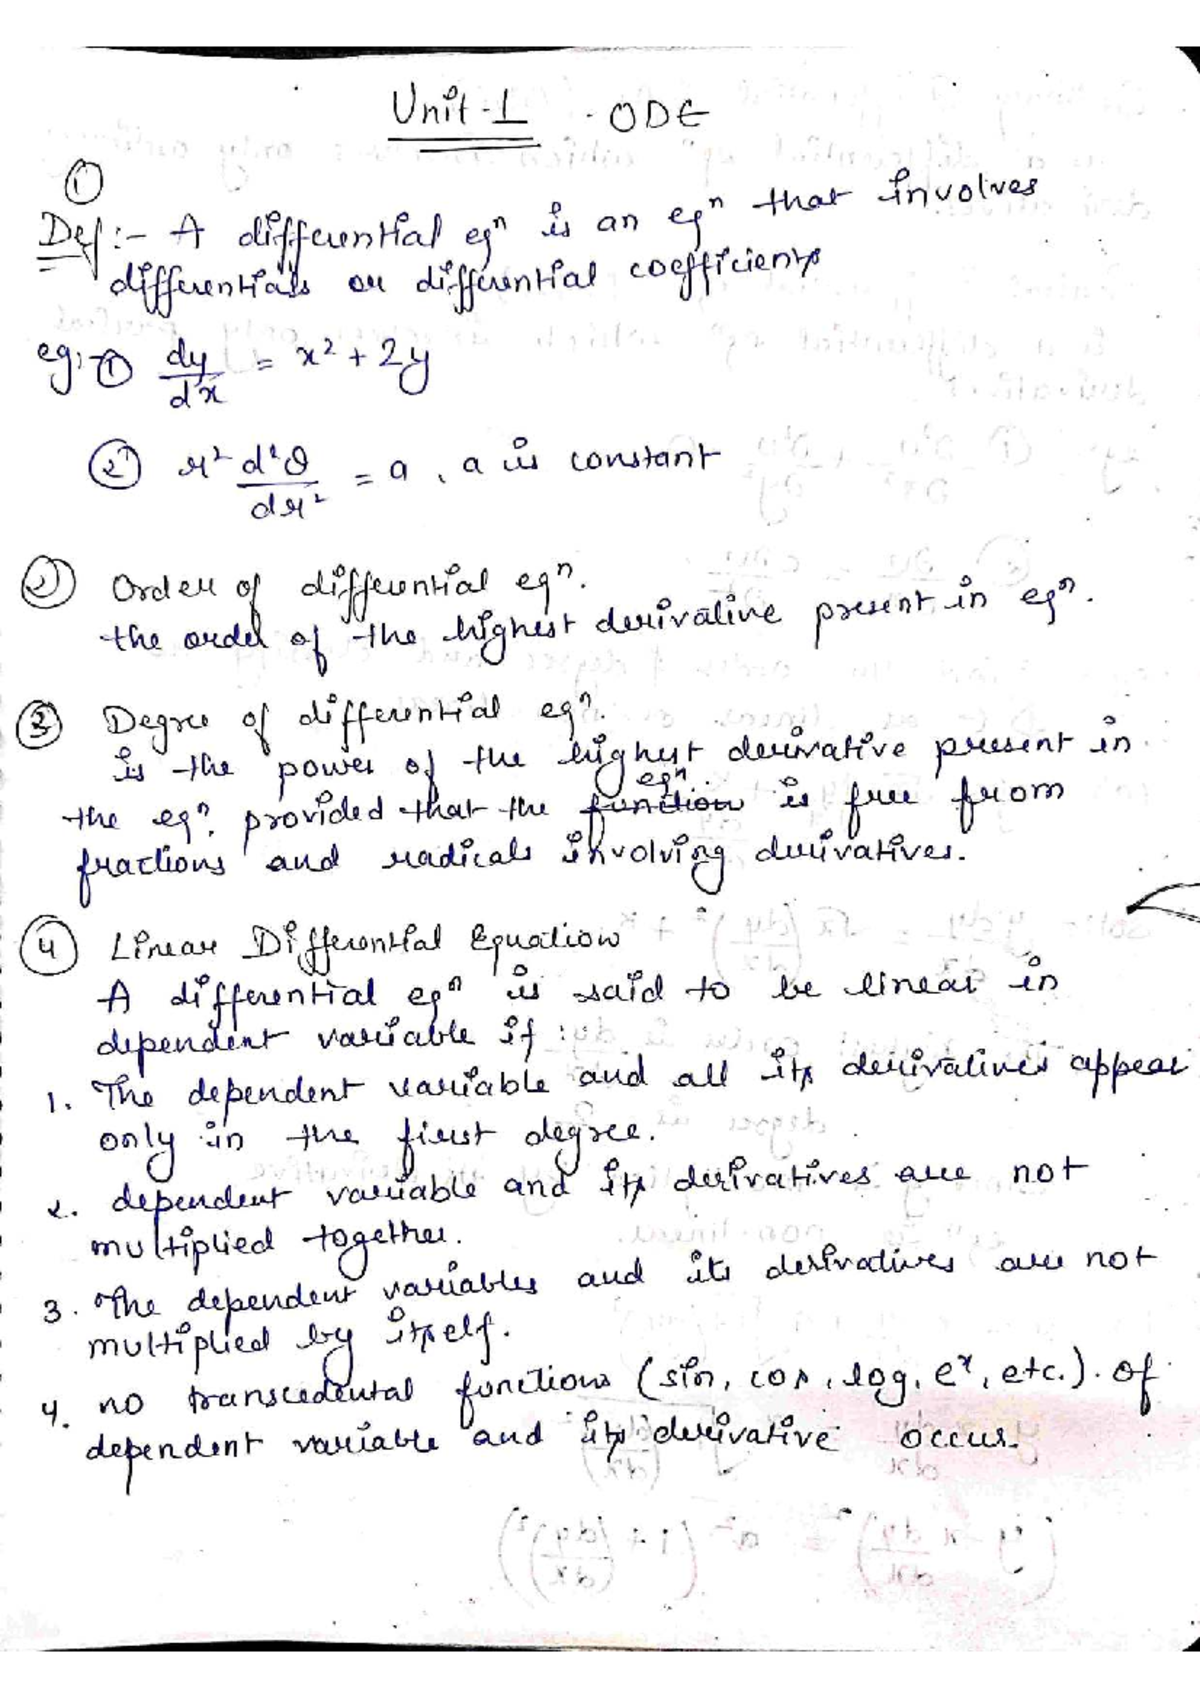 Unit-1 . ODE
①
Def:- A differential eqⁿ is an eqⁿ that involves
differentials or differential coefficients
eg:- ① dy/dx = x² + 2y
② r² d²θ/dr² = a , a is constant
② Order of differential eqⁿ.
the order of the highest derivative present in eqⁿ.
③ Degree of differential eqⁿ.
is the power of the highest derivative present in
eqⁿ.
the eqⁿ. provided that the function is free from
fractions and radicals involving derivatives.
④ Linear Differential Equation
A differential eqⁿ is said to be linear in
dependent variable if :
1. The dependent variable and all its derivatives appear
only in the first degree.
2. dependent variable and its derivatives are not
multiplied together.
3. The dependent variables and its derivatives are not
multiplied by itself.
4. no transcedental functions (sin, cos, log, eˣ, etc.). of
dependent variable and its derivative occur.